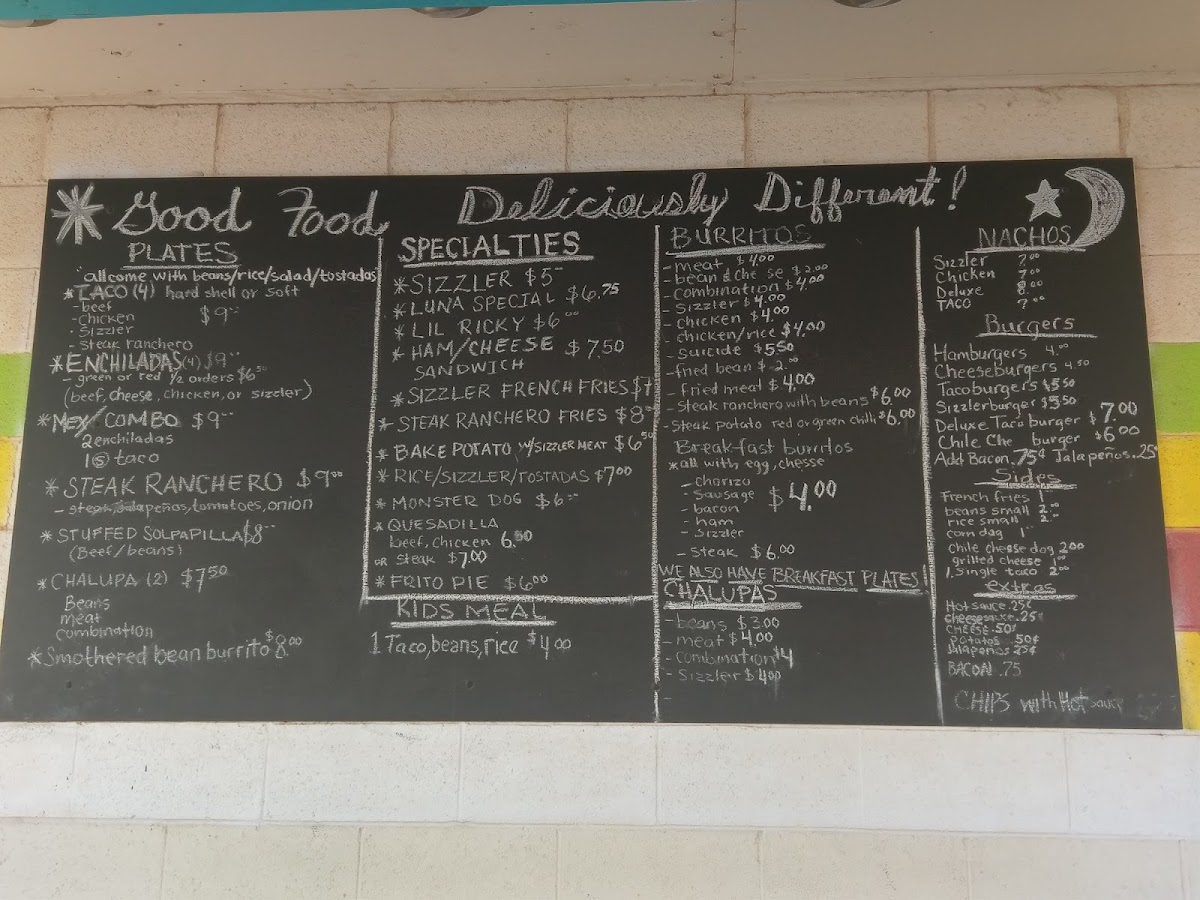 Good Food Deliciously Different!
PLATES
all come with beans/rice/salad/tostadas
*TACO (4) hard shell or soft
- beef
- chicken $9⁰⁰
- Sizzler
- steak ranchero
*ENCHILADAS (4) $9⁰⁰
- green or red 1/2 orders $6⁵⁰
(beef, cheese, chicken, or sizzler)
*MEX COMBO $9⁰⁰
2 enchiladas
1 taco
*STEAK RANCHERO $9⁰⁰
- steak, jalapeños, tomatoes, onion
*STUFFED SOLPAPILLA $8⁰⁰
(Beef/beans)
*CHALUPA (2) $7⁵⁰
Beans
meat
combination
*Smothered bean burrito $8.00
SPECIALTIES
*SIZZLER $5
*LUNA SPECIAL $6.75
*LIL RICKY $6⁰⁰
*HAM/CHEESE $7.50
SANDWICH
*SIZZLER FRENCH FRIES $7
*STEAK RANCHERO FRIES $8
*BAKE POTATO W/SIZZLER MEAT $6⁵⁰
*RICE/SIZZLER/TOSTADAS $7⁰⁰
*MONSTER DOG $6⁰⁰
*QUESADILLA
beef, chicken 6.50
OR steak $7.00
*FRITO PIE $6⁰⁰
KIDS MEAL
1 Taco, beans, rice $4.00
BURRITOS
- meat $4.00
- bean & che se $2.00
- combination $4.00
- Sizzler $4.00
- chicken $4.00
- chicken/rice $4.00
- Suicide $5⁵⁰
- fried bean $2.⁰⁰
- fried meat $4.00
- Steak ranchero with beans $6.00
- Steak potato red or green chili $6.00
Breakfast burritos
*all with egg, chesse
- chorizo
- Sausage $4.00
- bacon
- ham
- Sizzler
- Steak $6.00
WE ALSO HAVE BREAKFAST PLATES
CHALUPAS
- beans $3.00
- meat $4.00
- combination $4
- Sizzler $4.00
NACHOS
Sizzler 7⁰⁰
Chicken 7⁰⁰
Deluxe 8⁰⁰
TACO
Burgers
Hamburgers 4.⁰⁰
Cheeseburgers 4.50
Tacoburgers $5⁵⁰
Sizzlerburger $5⁵⁰
Deluxe Taco burger $7.00
Chile Che burger $6.00
Add Bacon .75¢ Jalapeños .25¢
Sides
French fries 1
beans small 2.⁰⁰
rice small 2.⁰⁰
corn dog 1
chile cheese dog 2⁰⁰
grilled cheese 1
1. single taco 2⁰⁰
extras
Hot sauce .25¢
cheesesauce .25¢
CHEESE .50¢
Potatos .50¢
Jalapenos .25¢
BACON .75
CHIPS with Hot sauce